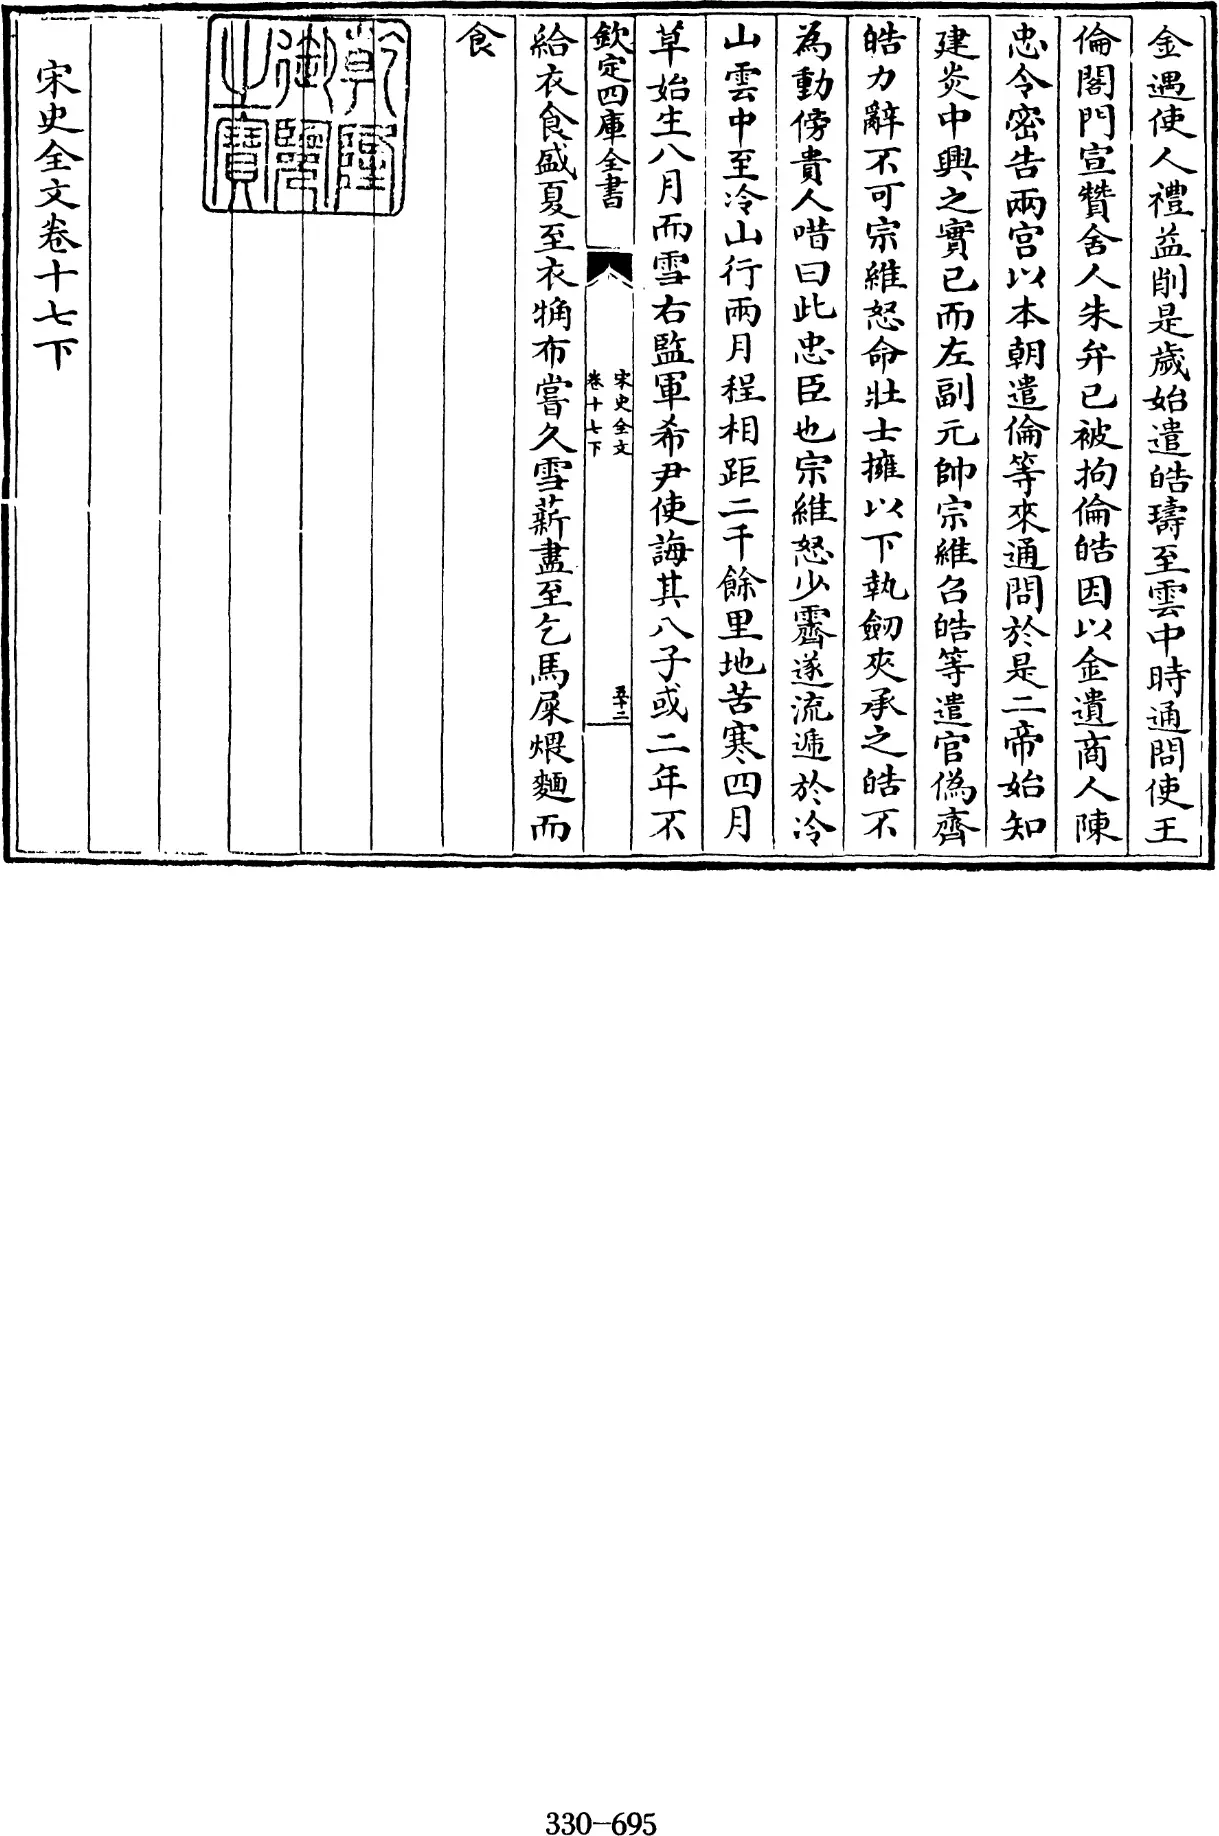 金遇使人禮益削是歲始遣皓璹至雲中時通問使王
倫閤門宣贊舍人朱弁已被拘倫皓因以金遺商人陳
忠令密告兩宮以本朝遣倫等來通問於是二帝始知
建炎中興之實已而左副元帥宗維召皓等遣官偽齊
皓力辭不可宗維怒命壯士擁以下執劒夾承之皓不
為動傍貴人唶曰此忠臣也宗維怒少霽遂流遞於冷
山雲中至冷山行兩月程相距二千餘里地苦寒四月
草始生八月而雪右監軍希尹使誨其八子或二年不
欽定四庫全書
宋史全文
卷十七下
五十二
給衣食盛夏至衣觕布嘗久雪薪盡至乞馬屎煨麵而
食
乾隆
御覽
之寶
宋史全文卷十七下
330-695